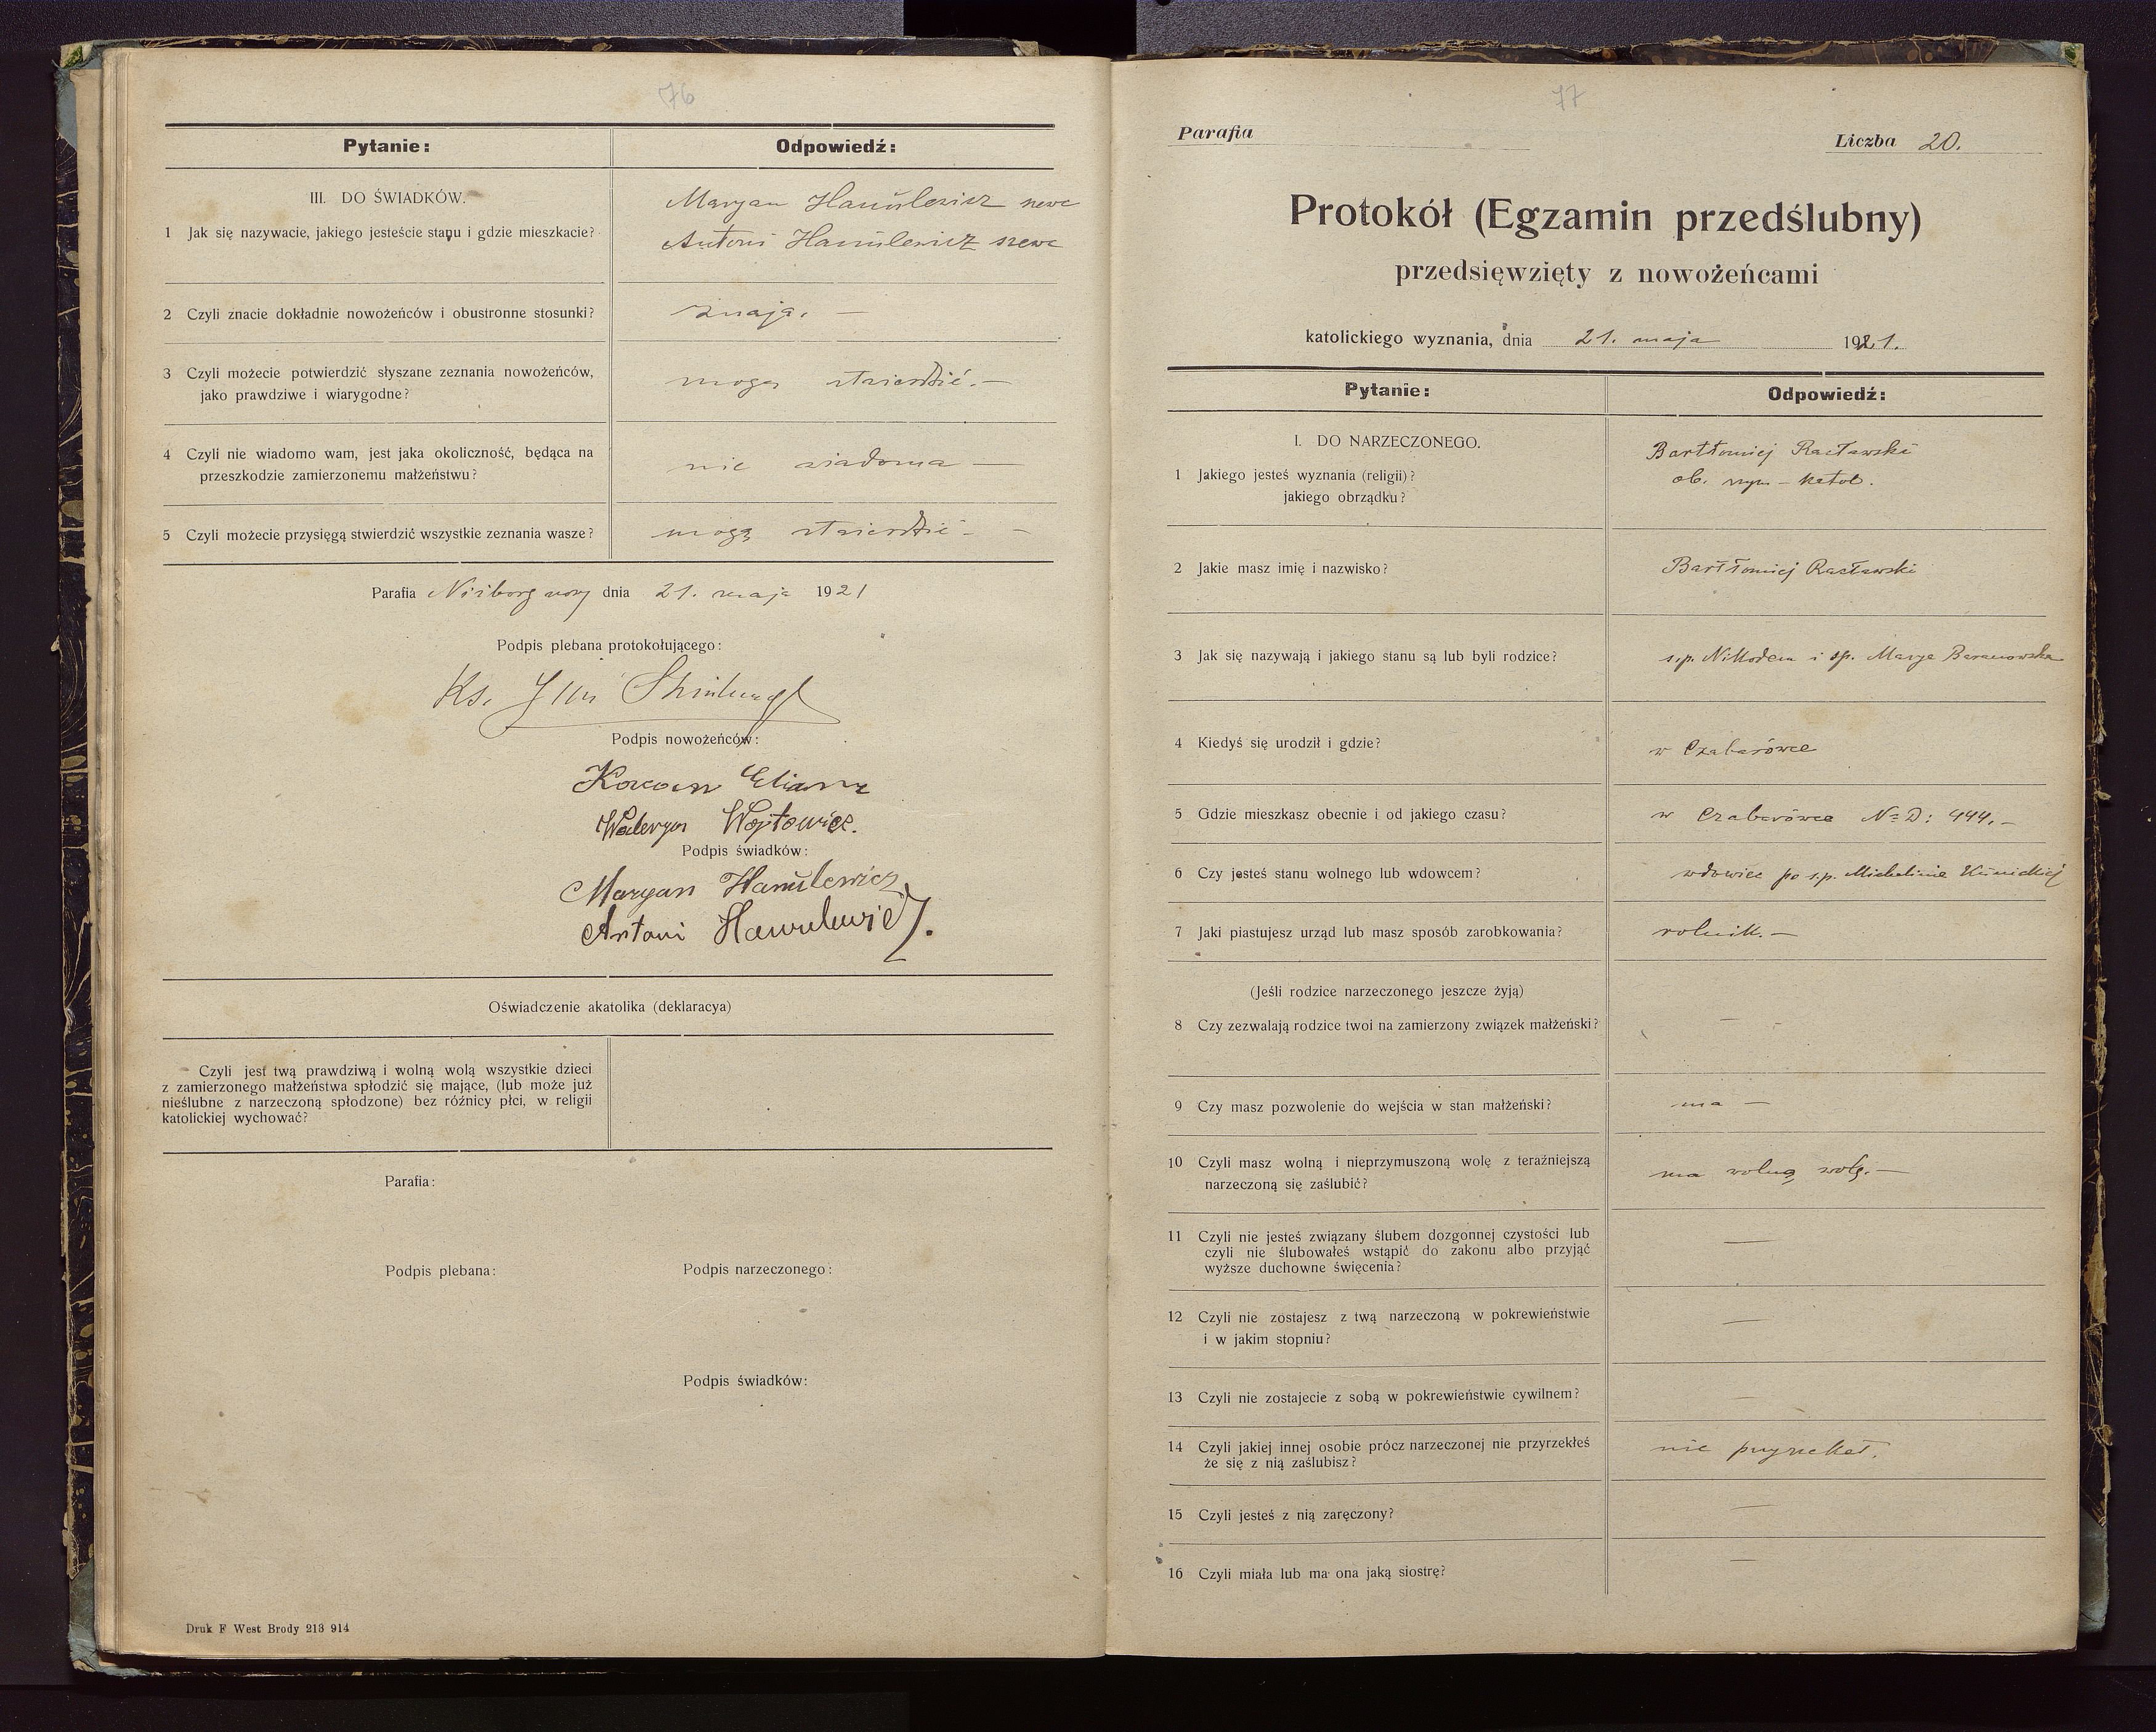 76
Pytanie:
Odpowiedź:
III. DO ŚWIADKÓW.
1 Jak się nazywacie, jakiego jesteście stanu i gdzie mieszkacie?
Maryan Hanulewicz szewc
Antoni Hanulewicz szewc
2 Czyli znacie dokładnie nowożeńców i obustronne stosunki?
znają. —
3 Czyli możecie potwierdzić słyszane zeznania nowożeńców,
jako prawdziwe i wiarygodne?
mogą stwierdzić. —
4 Czyli nie wiadomo wam, jest jaka okoliczność, będąca na
przeszkodzie zamierzonemu małżeństwu?
nie wiadoma —
5 Czyli możecie przysięgą stwierdzić wszystkie zeznania wasze?
mogą stwierdzić - —
Parafia Niżborg nowy dnia 21. maja 1921
Podpis plebana protokołującego:
Ks.
Podpis nowożeńców:
Eliasz
Waleryа Wojtowicz.
Podpis świadków:
Maryan Hanulewicz
Antoni Hanulewicz.
Oświadczenie akatolika (deklaracya)
Czyli jest twą prawdziwą i wolną wolą wszystkie dzieci
z zamierzonego małżeństwa spłodzić się mające, (lub może już
nieślubne z narzeczoną spłodzone) bez różnicy płci, w religii
katolickiej wychować?
Parafia:
Podpis plebana:
Podpis narzeczonego:
Podpis świadków:
Druk F West Brody 213 914
77
Parafia
Liczba 20.
Protokół (Egzamin przedślubny)
przedsięwzięty z nowożeńcami
katolickiego wyznania, dnia 21. maja 1921.
Pytanie:
Odpowiedź:
I. DO NARZECZONEGO.
1 Jakiego jesteś wyznania (religii)?
jakiego obrządku?
Bartłomiej Racławski
ob. rzym - katol.
2 Jakie masz imię i nazwisko?
Bartłomiej Racławski
3 Jak się nazywają i jakiego stanu są lub byli rodzice?
s.p. Nikodem i sp. Marya Baranowska
4 Kiedyś się urodził i gdzie?
w Czabarówce
5 Gdzie mieszkasz obecnie i od jakiego czasu?
w Czabarówce No D: 444. —
6 Czy jesteś stanu wolnego lub wdowcem?
wdowiec po s.p. Michalinie
7 Jaki piastujesz urząd lub masz sposób zarobkowania?
rolnik. —
(Jeśli rodzice narzeczonego jeszcze żyją)
8 Czy zezwalają rodzice twoi na zamierzony związek małżeński?
— -
9 Czy masz pozwolenie do wejścia w stan małżeński?
ma —
10 Czyli masz wolną i nieprzymuszoną wolę z teraźniejszą
narzeczoną się zaślubić?
ma wolną wolę. —
11 Czyli nie jesteś związany ślubem dozgonnej czystości lub
czyli nie ślubowałeś wstąpić do zakonu albo przyjąć
wyższe duchowne święcenia?
—
12 Czyli nie zostajesz z twą narzeczoną w pokrewieństwie
i w jakim stopniu?
—
13 Czyli nie zostajecie z sobą w pokrewieństwie cywilnem?
—
14 Czyli jakiej innej osobie prócz narzeczonej nie przyrzekłeś
że się z nią zaślubisz?
nie przyrzekał.
15 Czyli jesteś z nią zaręczony?
—
16 Czyli miała lub ma ona jaką siostrę?
—